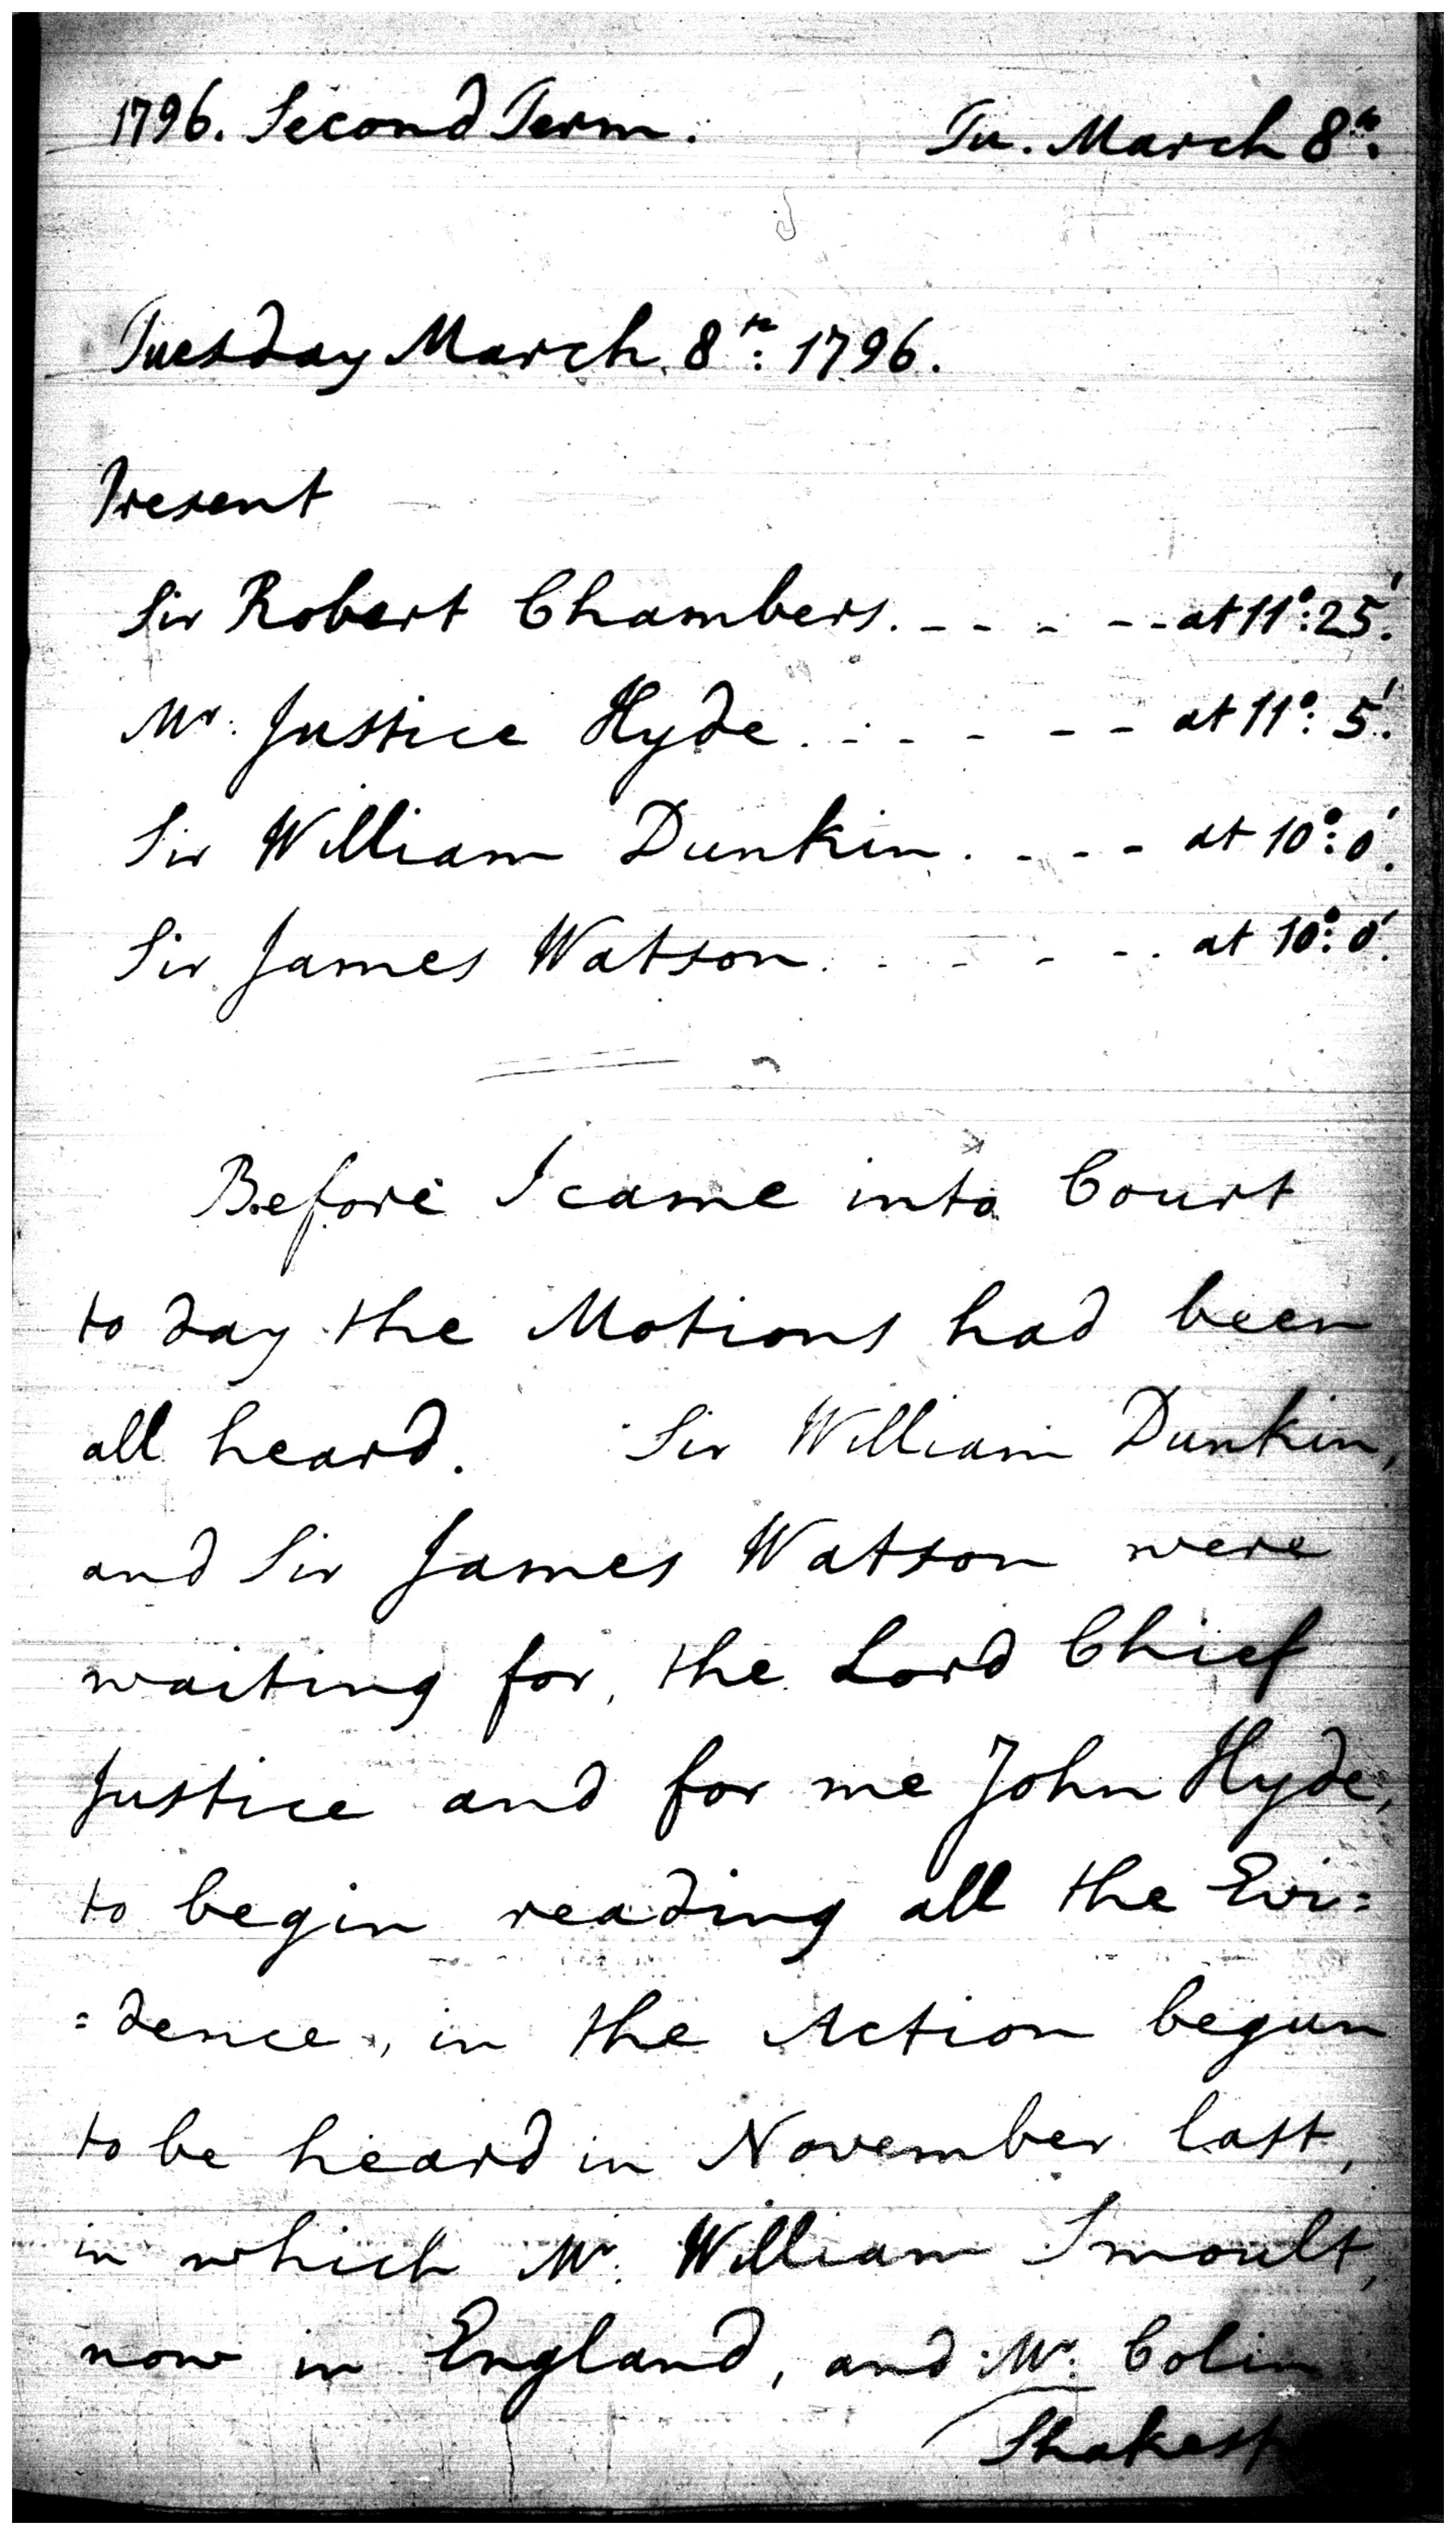 1796. Second Term. Tu. March 8th.
Tuesday March 8th: 1796.
Present
Sir Robert Chambers. - - - - - at 11°: 25'.
Mr. Justice Hyde. - - - - - - at 11°: 5'.
Sir William Dunkin. - - - - at 10°: 0'.
Sir James Watson. - - - - - at 10°: 0'.
Before I came into Court
to day the Motions had been
all heard. Sir William Dunkin,
and Sir James Watson were
waiting for, the Lord Chief
Justice and for me John Hyde,
to begin reading all the Evi=
=dence, in the Action begun
to be heard in November last,
in which Mr. William Smoult,
now in England, and Mr. Colin